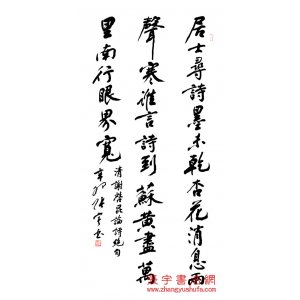 居士尋詩墨未乾杏花消息雨
聲寒誰言詩到蘇黃盡萬
里南行眼界寬
清謝啓昆論詩絕句
辛卯張宇書
張宇書網
www.zhangyushufa.com